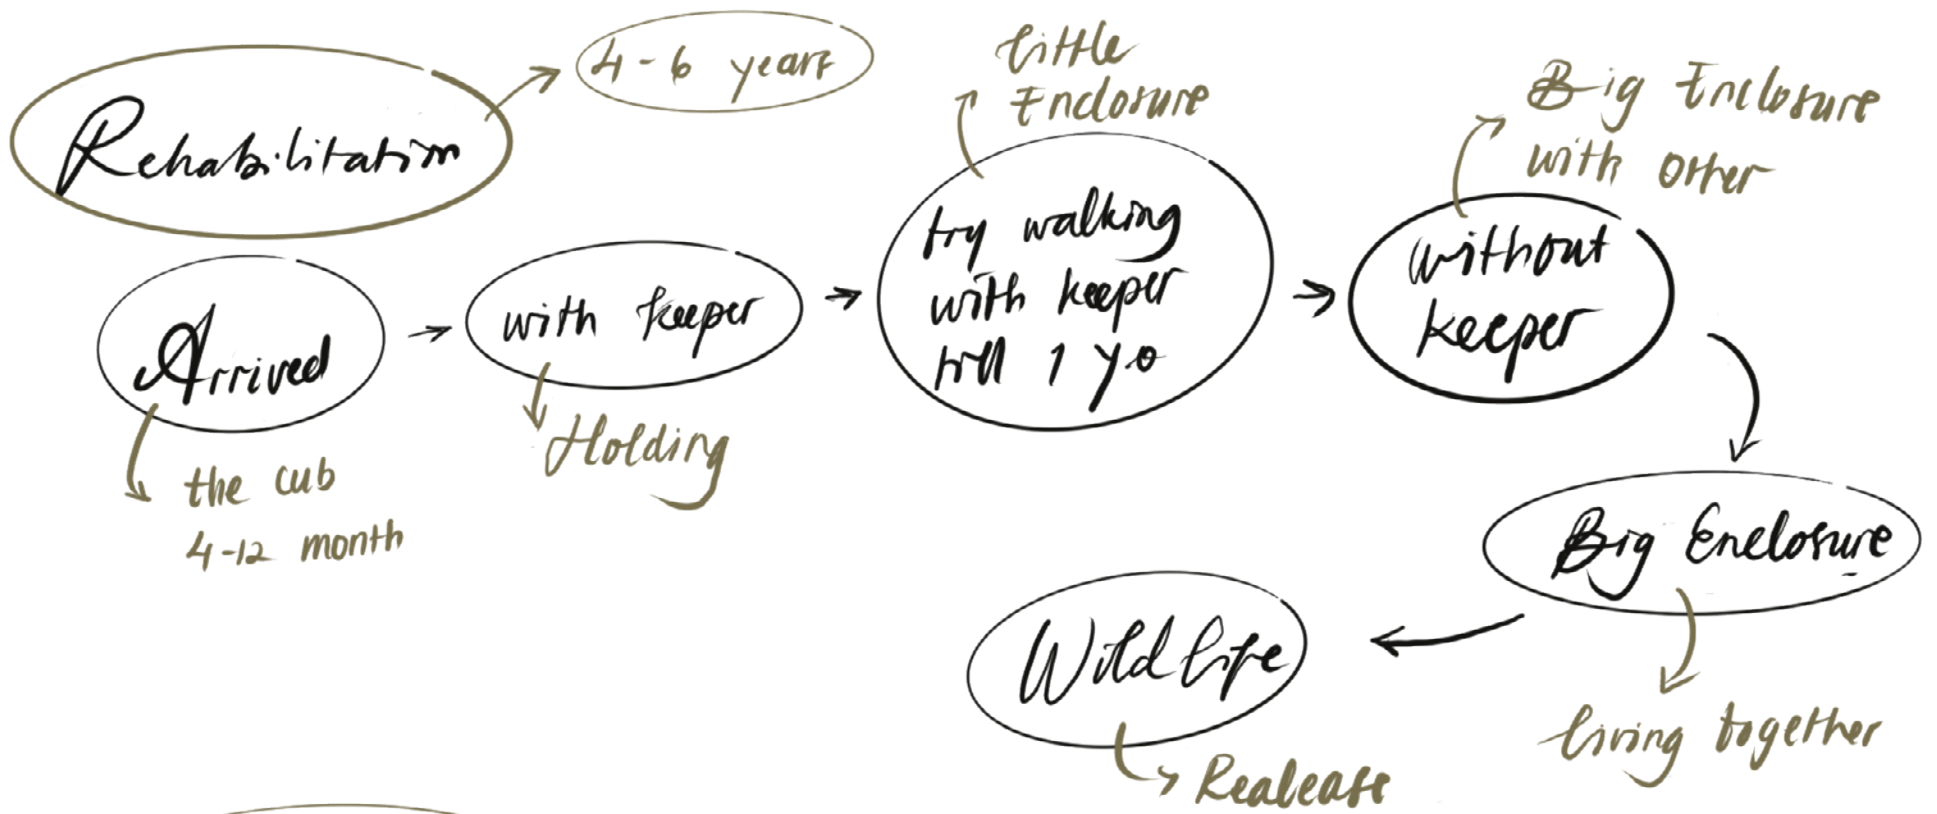 Rehabilitation
4-6 years
Arrived
the cub
4-12 month
with keeper
Holding
little
Enclosure
try walking
with keeper
till 1 yo
Big Enclosure
with other
without
keeper
Big Enclosure
living together
Wild life
Realease